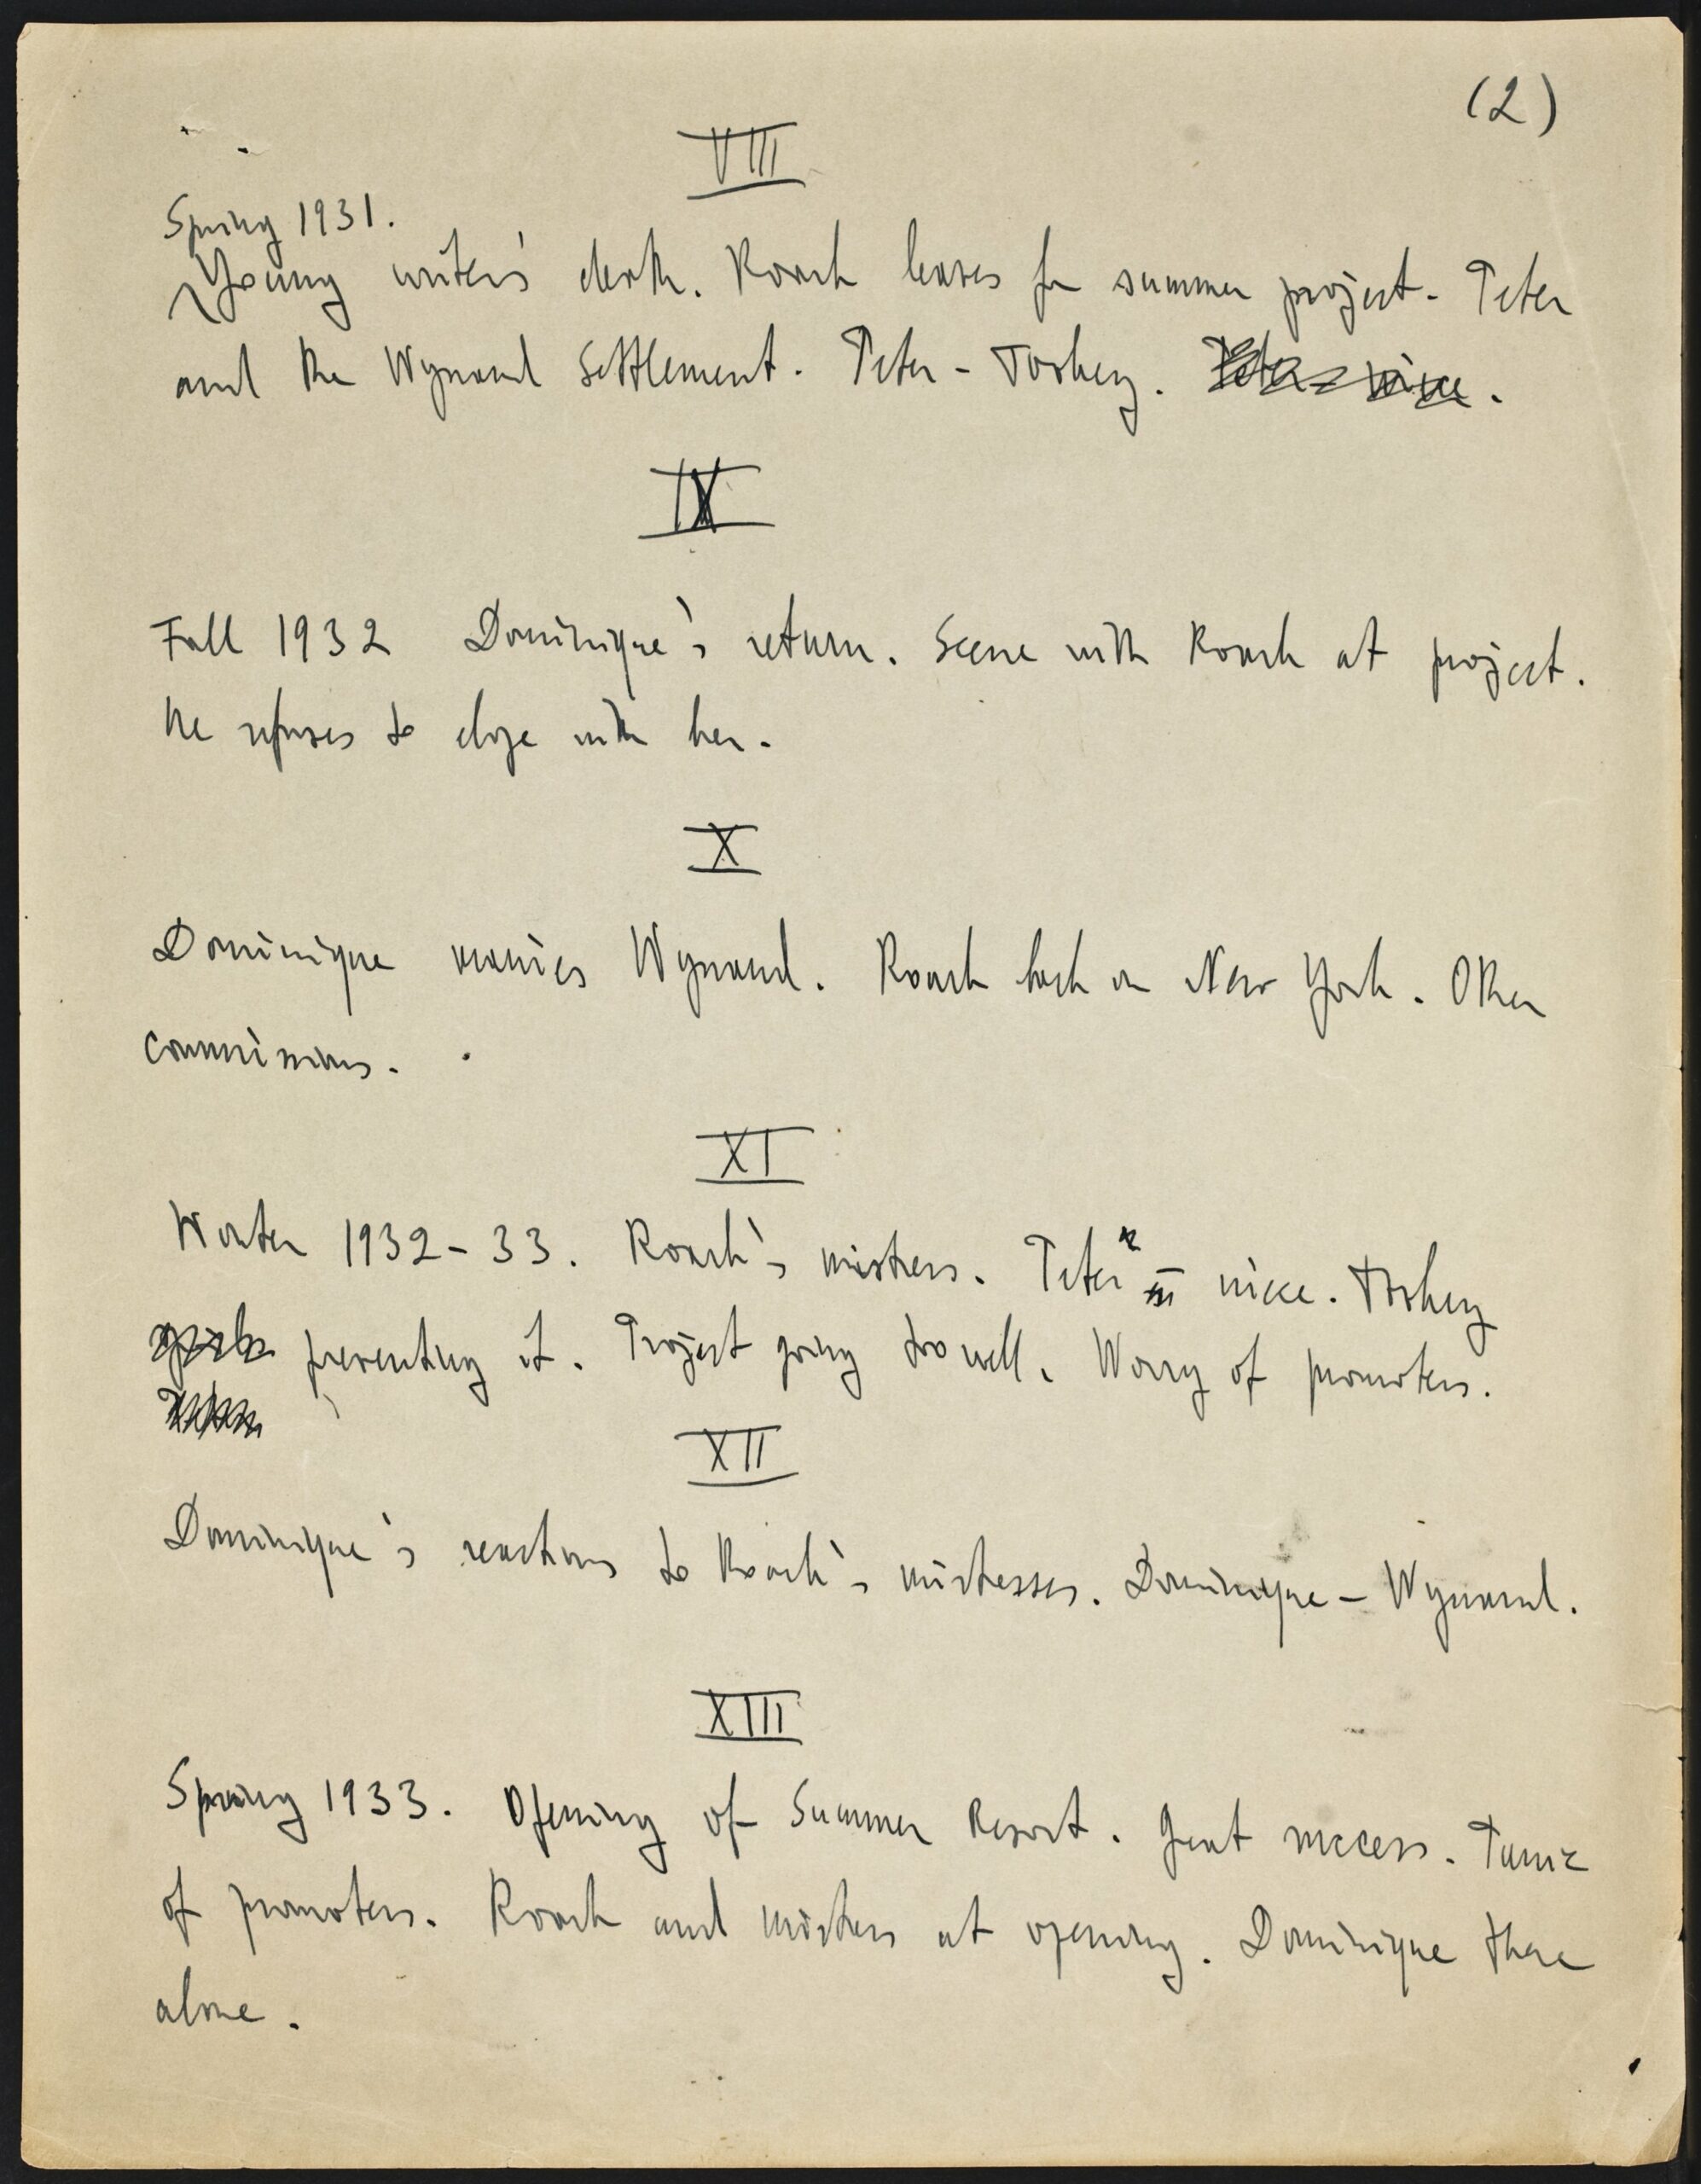 (2)
VIII
Spring 1931.
Young writer's death. Roark leaves for summer project. Peter
and the Wynand Settlement. Peter - Toohey. Peter - niece.
IX
Fall 1932 Dominique's return. Scene with Roark at project.
He refuses to elope with her.
X
Dominique marries Wynand. Roark back in New York. Other
commissions.
XI
Winter 1932-33. Roark's mistress. Peter & niece. Toohey
preventing it. Project going too well. Worry of promoters.
XII
Dominique's reactions to Roark's mistesses. Dominique - Wynand.
XIII
Spring 1933. Opening of Summer Resort. Great success. Panic
of promoters. Roark and mistress at opening. Dominique there
alone.